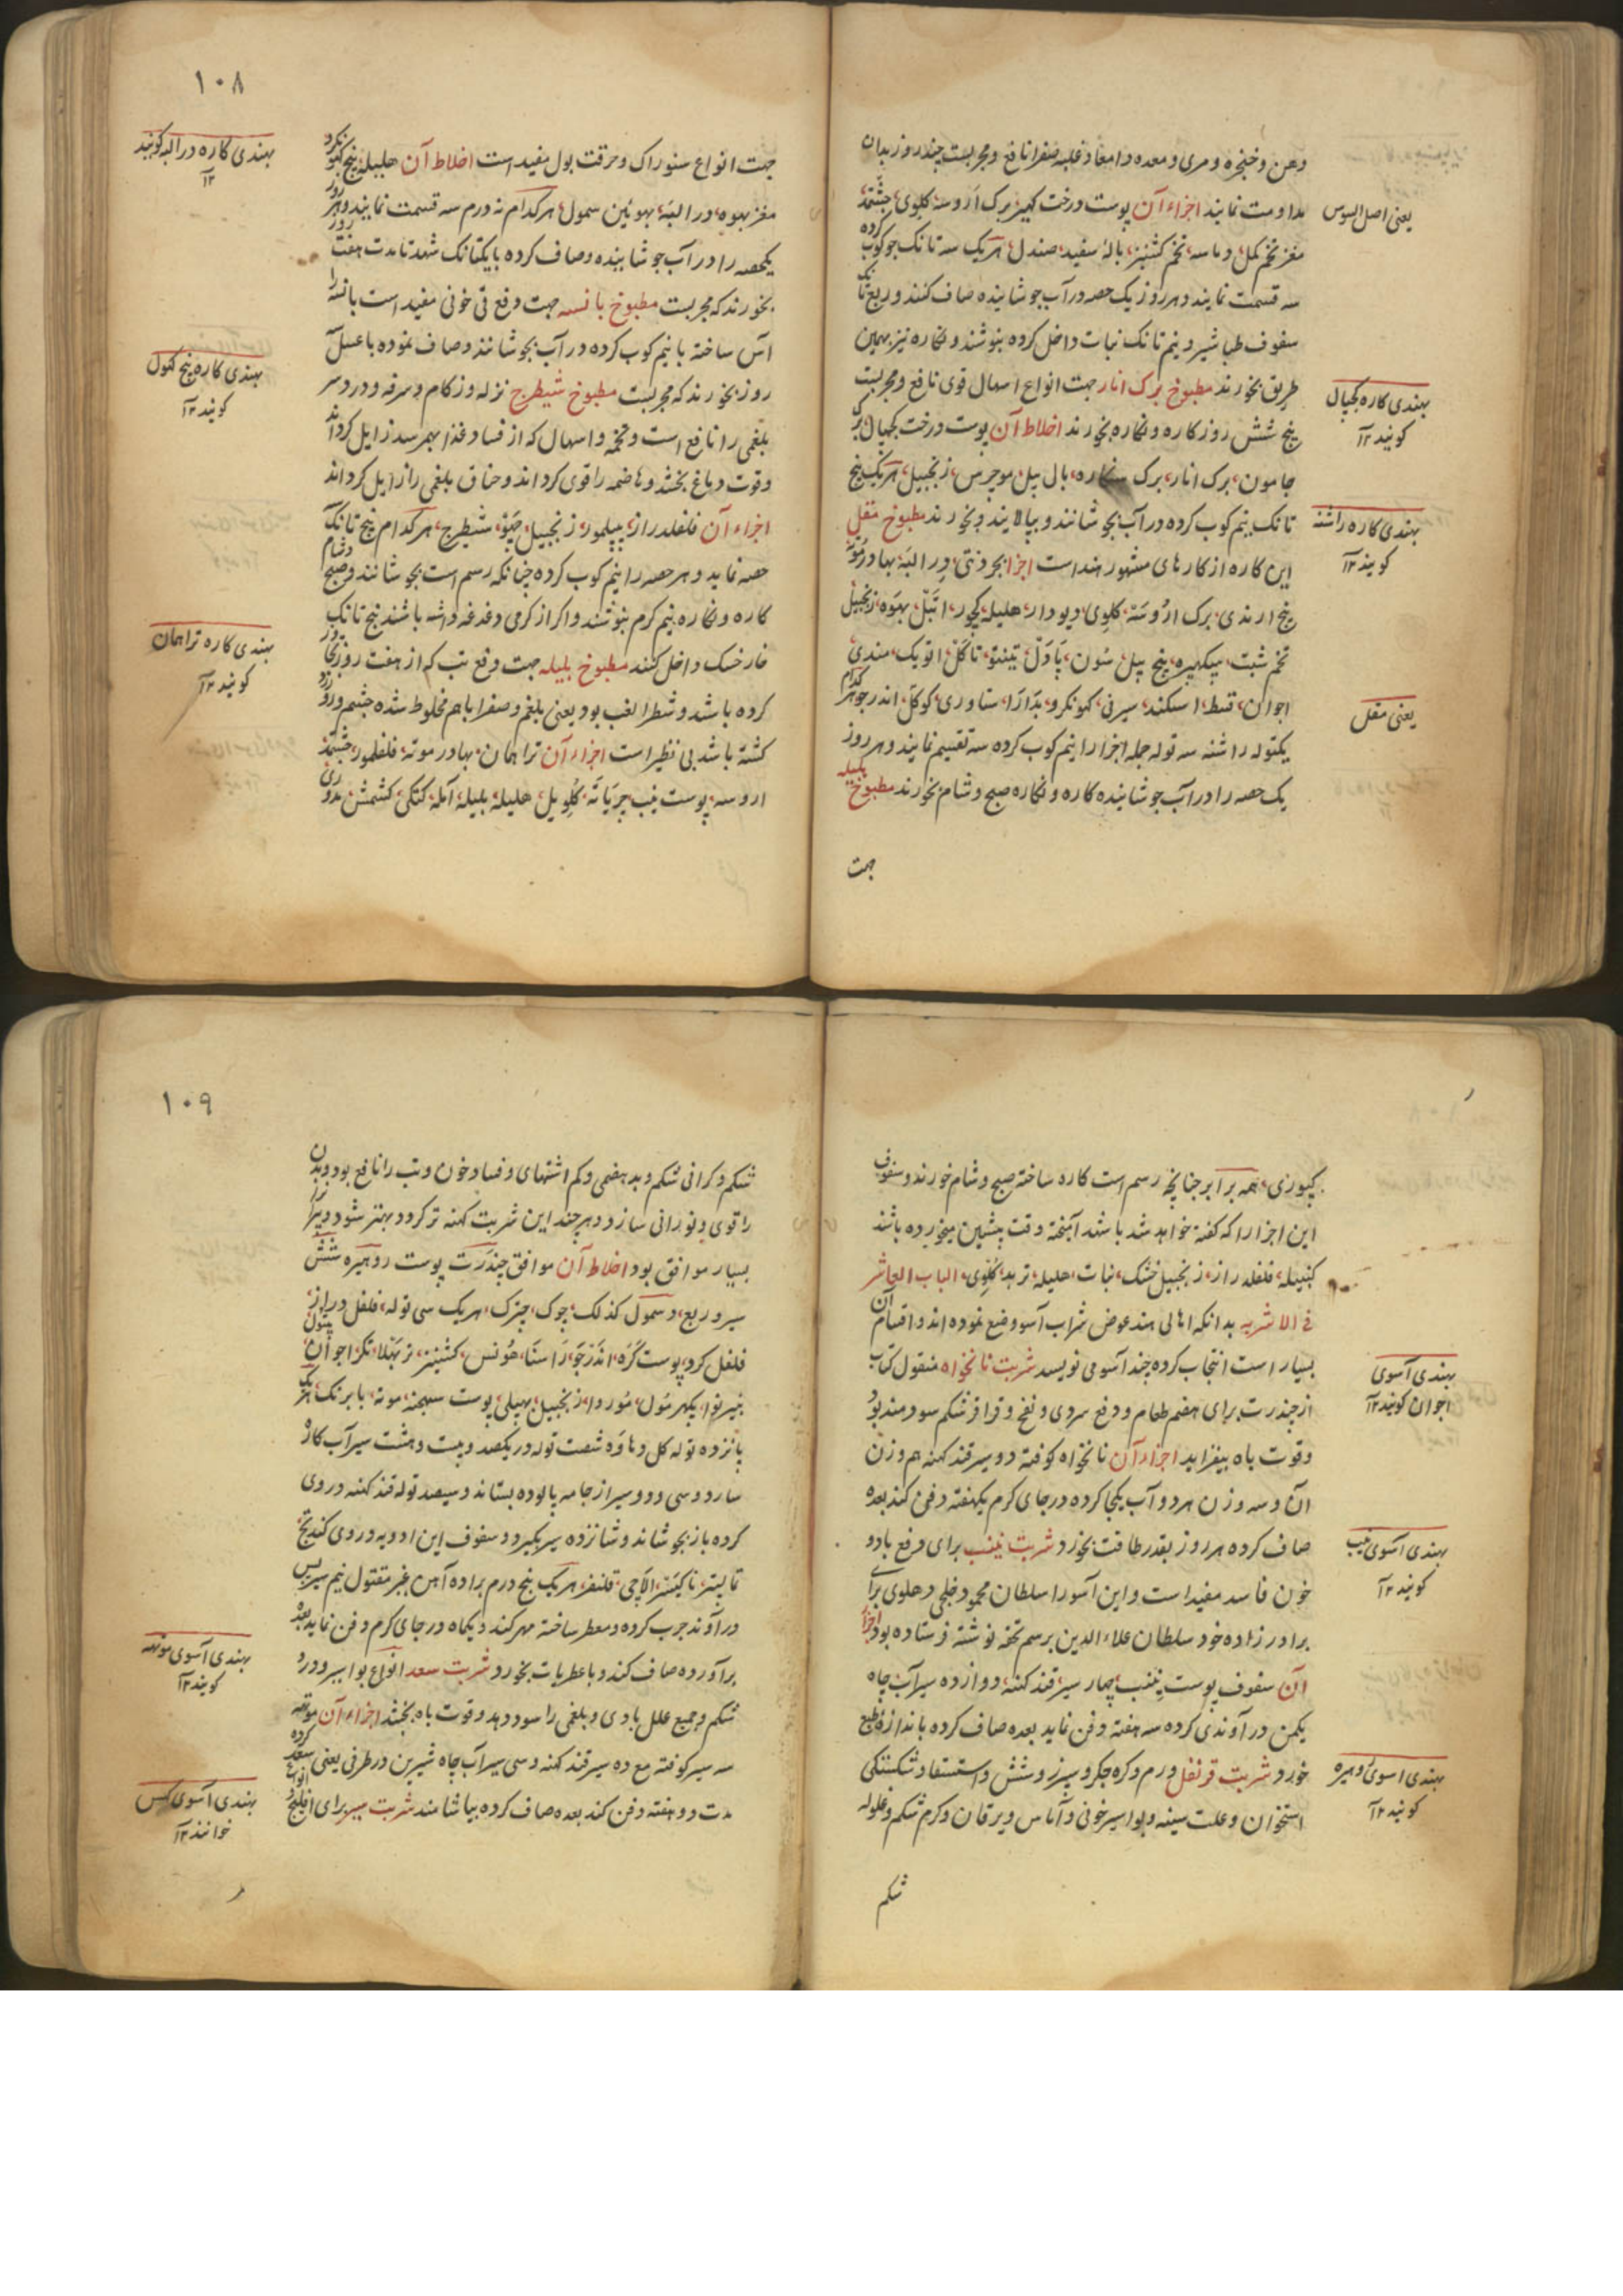 دهن و خنجره و مری و معده و امعا و غلبه صفرا نافع و مجربست چند روز بدان
مداومت نمایند اجزاء آن پوست درخت کهیر، برک اروسه، کلوی،
یعنی اصل السوس
مغز تخم کمل، دماسه، تخم کشنیز، بالۀ سفید، صندل، هریک سه تانک جوکوب کرده
سه قسمت نمایند و هر روز یک حصه در آب جوشانیده صاف کنند و ربع تانک
سفوف طباشیر و نیم تانک نبات داخل کرده بنوشند و نکاره نیز بهمین
طریق بخورند مطبوخ برک انار جهت انواع اسهال قوی نافع و مجربست
بهندی کاره کجیال
کویند ۱۲
پنج شش روز کاره و نکاره بخورند اخلاط آن پوست درخت کجیال، برک
جامون، برک انار، برک، بال بیل، موچرس، زنجبیل، هریک پنج
تانک نیم کوب کرده در آب بجوشانند و بپالایند و بخورند مطبوخ مقل
بهندی کاره راشنه
کویند ۱۲
این کاره از کارهای مشهور هند است اجزا بجردنتی، درالبه، بهادرموته
بیخ ارندی، برک اروسه، کلوی، دیودار، هلیله، کچور، بهوه، زنجبیل
تخم شبت، پیپل،
اجوان، قسط، اسکند، ستاوری، کوکل، اندرجو، هرکدام
یعنی مقل
یکتوله راشنه سه توله جمله اجزا را نیم کوب کرده سه تقسیم نمایند و هر روز
یک حصه را در آب جوشانیده کاره و نکاره صبح و شام بخورند مطبوخ هلیله
جهت
۱۰۸
جهت انواع سنوراک و حرقت بول مفید است اخلاط آن هلیله، پنج
بهندی کاره درالبه کویند
۱۲
مغز بهوه، درالبه، سمول، هرکدام نه درم سه قسمت نمایند و هر روز
یکحصه را در آب جوشانیده و صاف کرده با یکتانک شهد تا مدت هفت روز
بخورند که مجربست مطبوخ بانسه جهت دفع قی خونی مفید است بانسه را
آس ساخته یا نیم کوب کرده در آب بجوشانند و صاف نموده با عسل
بهندی کاره پنج کول
کویند ۱۲
روز بخورند که مجربست مطبوخ شیطرج نزله و زکام و سرفه و درد سر
بلغمی را نافع است و تخمه و اسهال که از فساد غذا بهم رسد زایل کرداند
و قوت دماغ بخشد و هاضمه را قوی کرداند و خناق بلغمی را زایل کرداند
اجزاء آن فلفل دراز، پیپلمور، زنجبیل، چتو، شیطرج، هرکدام پنج تانک
حصه نماید و هر حصه را نیم کوب کرده چنانکه رسم است بجوشانند و صبح و شام
کاره و نکاره نیم کرم بنوشند و اکر از کرمی دغدغه داشته باشند پنج تانک
خارخسک داخل کنند مطبوخ بلیله جهت دفع تب که از هفت روز تجاوز
بهندی کاره تراهمان
کویند ۱۲
کرده باشد و شطر الغب بود یعنی بلغم و صفرا باهم مخلوط شده چشم و رو زرد
کشته باشد بی نظیر است اجزاء آن تراهمان، بهادر موته، فلفلمور،
اروسه، پوست نیب، چریاته، کلوی، بیل، هلیله، بلیله، آمله، کتکی، کشمش،
کپوری، همه برابر چنانچه رسم است کاره ساخته صبح و شام خورند و سفوف
این اجزا را که کفته خواهد شد باشد آمیخته وقت پیشین میخورده باشند
کنبیله، فلفلدراز، زنجبیل خشک، نبات، هلیله، تربد، کلوی، الباب العاشر
فی الاشربه بدانکه اهالی هند عوض شراب آسو وضع نموده اند و اقسام آن
بسیار است انتخاب کرده چند آسو می نویسد شربت نانخواه منقول کتاب
بهندی آسوی
اجوان کویند ۱۲
از جندرت برای هضم طعام و دفع سردی و نفخ و قراقر شکم سودمند بود
و قوت باه بیفزاید اجزاء آن نانخواه کوفته دو سیر قند کهنه هم وزن
آن و سه وزن هر دو آب یکجا کرده در جای کرم یکهفته دفن کند بعده
صاف کرده هر روز بقدر طاقت بخورد شربت نینب برای دفع باد و
بهندی آسوی نیب
کویند ۱۲
خون فاسد مفید است و این آسو را سلطان محمود خلجی دهلوی برای
برادر زاده خود سلطان علاء الدین برسم تحفه نوشته فرستاده بود اجزاء
آن سفوف پوست نینب چهار سیر، قند کهنه، دوازده سیر آب چاه
یکمن در آوندی کرده سه هفته دفن نماید بعده صاف کرده باندازه طبع
خورد شربت قرنفل ورم و کره جکر و سپرز و شش و استسقا و شکستکی
بهندی آسوی دهیره
کویند ۱۲
استخوان و علت سینه و بواسیر خونی و آماس و یرقان و کرم شکم و غلوله
شکم
۱۰۹
شکم و کرانی شکم و بد هضمی و کم اشتهای و فساد خون و تب را نافع بود و بدن
را قوی و نورانی سازد و هر چند این شربت کهنه تر کردد بهتر شود و
بسیار موافق بود اخلاط آن موافق چندرت پوست روهیره شش
سیر و ربع، و سمول کذلک، چوک، چترک، هریک سی توله، فلفل دراز،
فلفل کرد، پوست کره، اندرجو، راسنا، هونس، کشنیز، اجوان،
زنجبیل، پیپلی، پوست سهجنه، موته، بابرنک، هریک
پانزده توله کل دهاوه شصت توله در یکصد و بیست و هشت سیر آب کاره
سازد و سی و دو سیر از جامه پالوده بستاند و سیصد توله قند کهنه در وی
کرده باز بجوشاند و شانزده سیر بکیرد و سفوف این ادویه در وی کند
تالیتر، الاچی، قلنفر، هریک پنج درم براده آهن غیر مقتول نیم سیر پس
در آوند چرب کرده و معطر ساخته مهر کند و یکماه در جای کرم دفن نماید بعده
برآورده صاف کند و با عطریات بخورد شربت سعد انواع بواسیر و درد
بهندی آسوی موتهه
کویند ۱۲
شکم و جمیع علل بادی و بلغمی را سود دهد و قوت باه بخشد اجزاء آن موتهه
سه سیر کوفته مع ده سیر قند کهنه و سی سیر آب چاه شیرین در ظرفی یعنی سعد کرده
مدت دو هفته دفن کند بعده صاف کرده بیاشامند شربت سیر برای انواع فلج و
بهندی آسوی لهسن
خوانند ۱۲